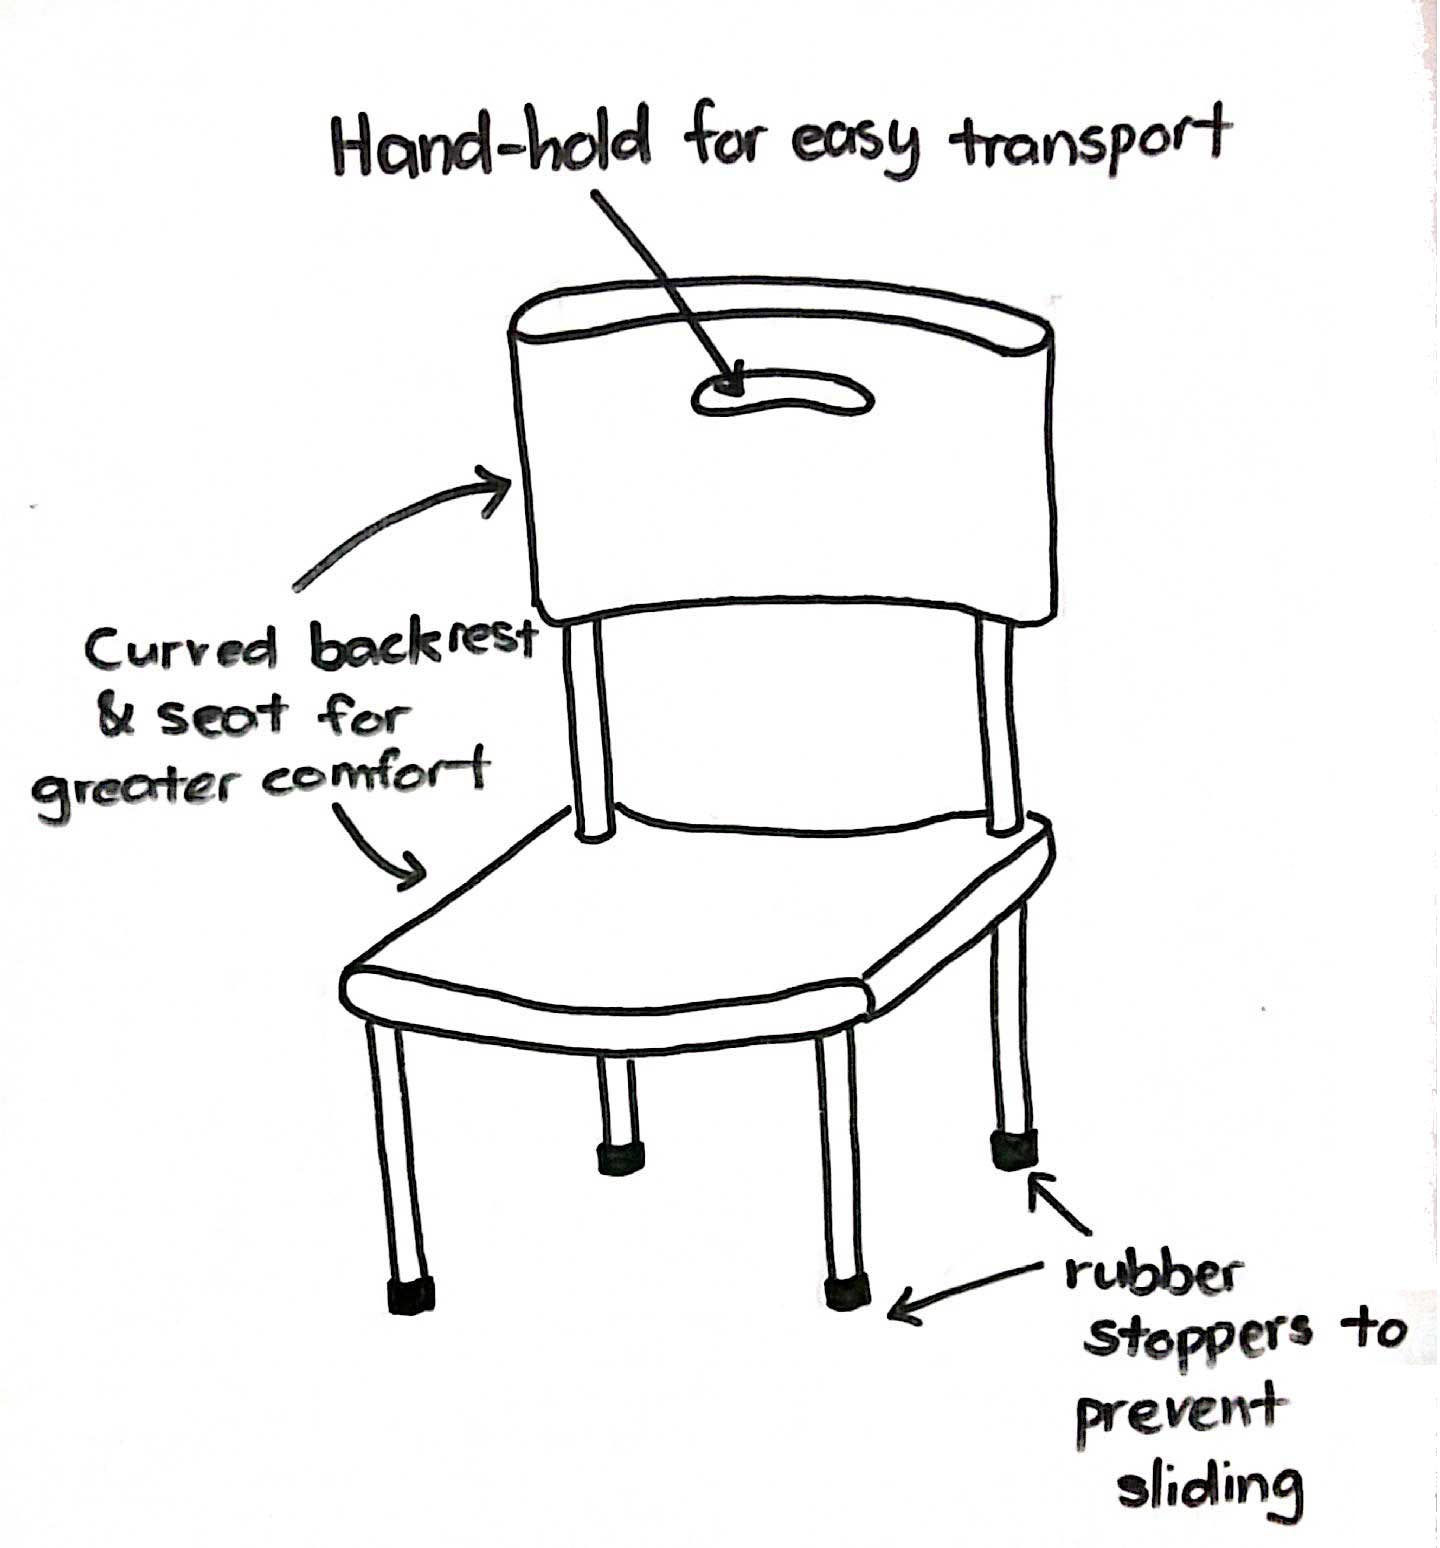 Hand-hold for easy transport
Curved backrest
& seat for
greater comfort
rubber
stoppers to
prevent
sliding